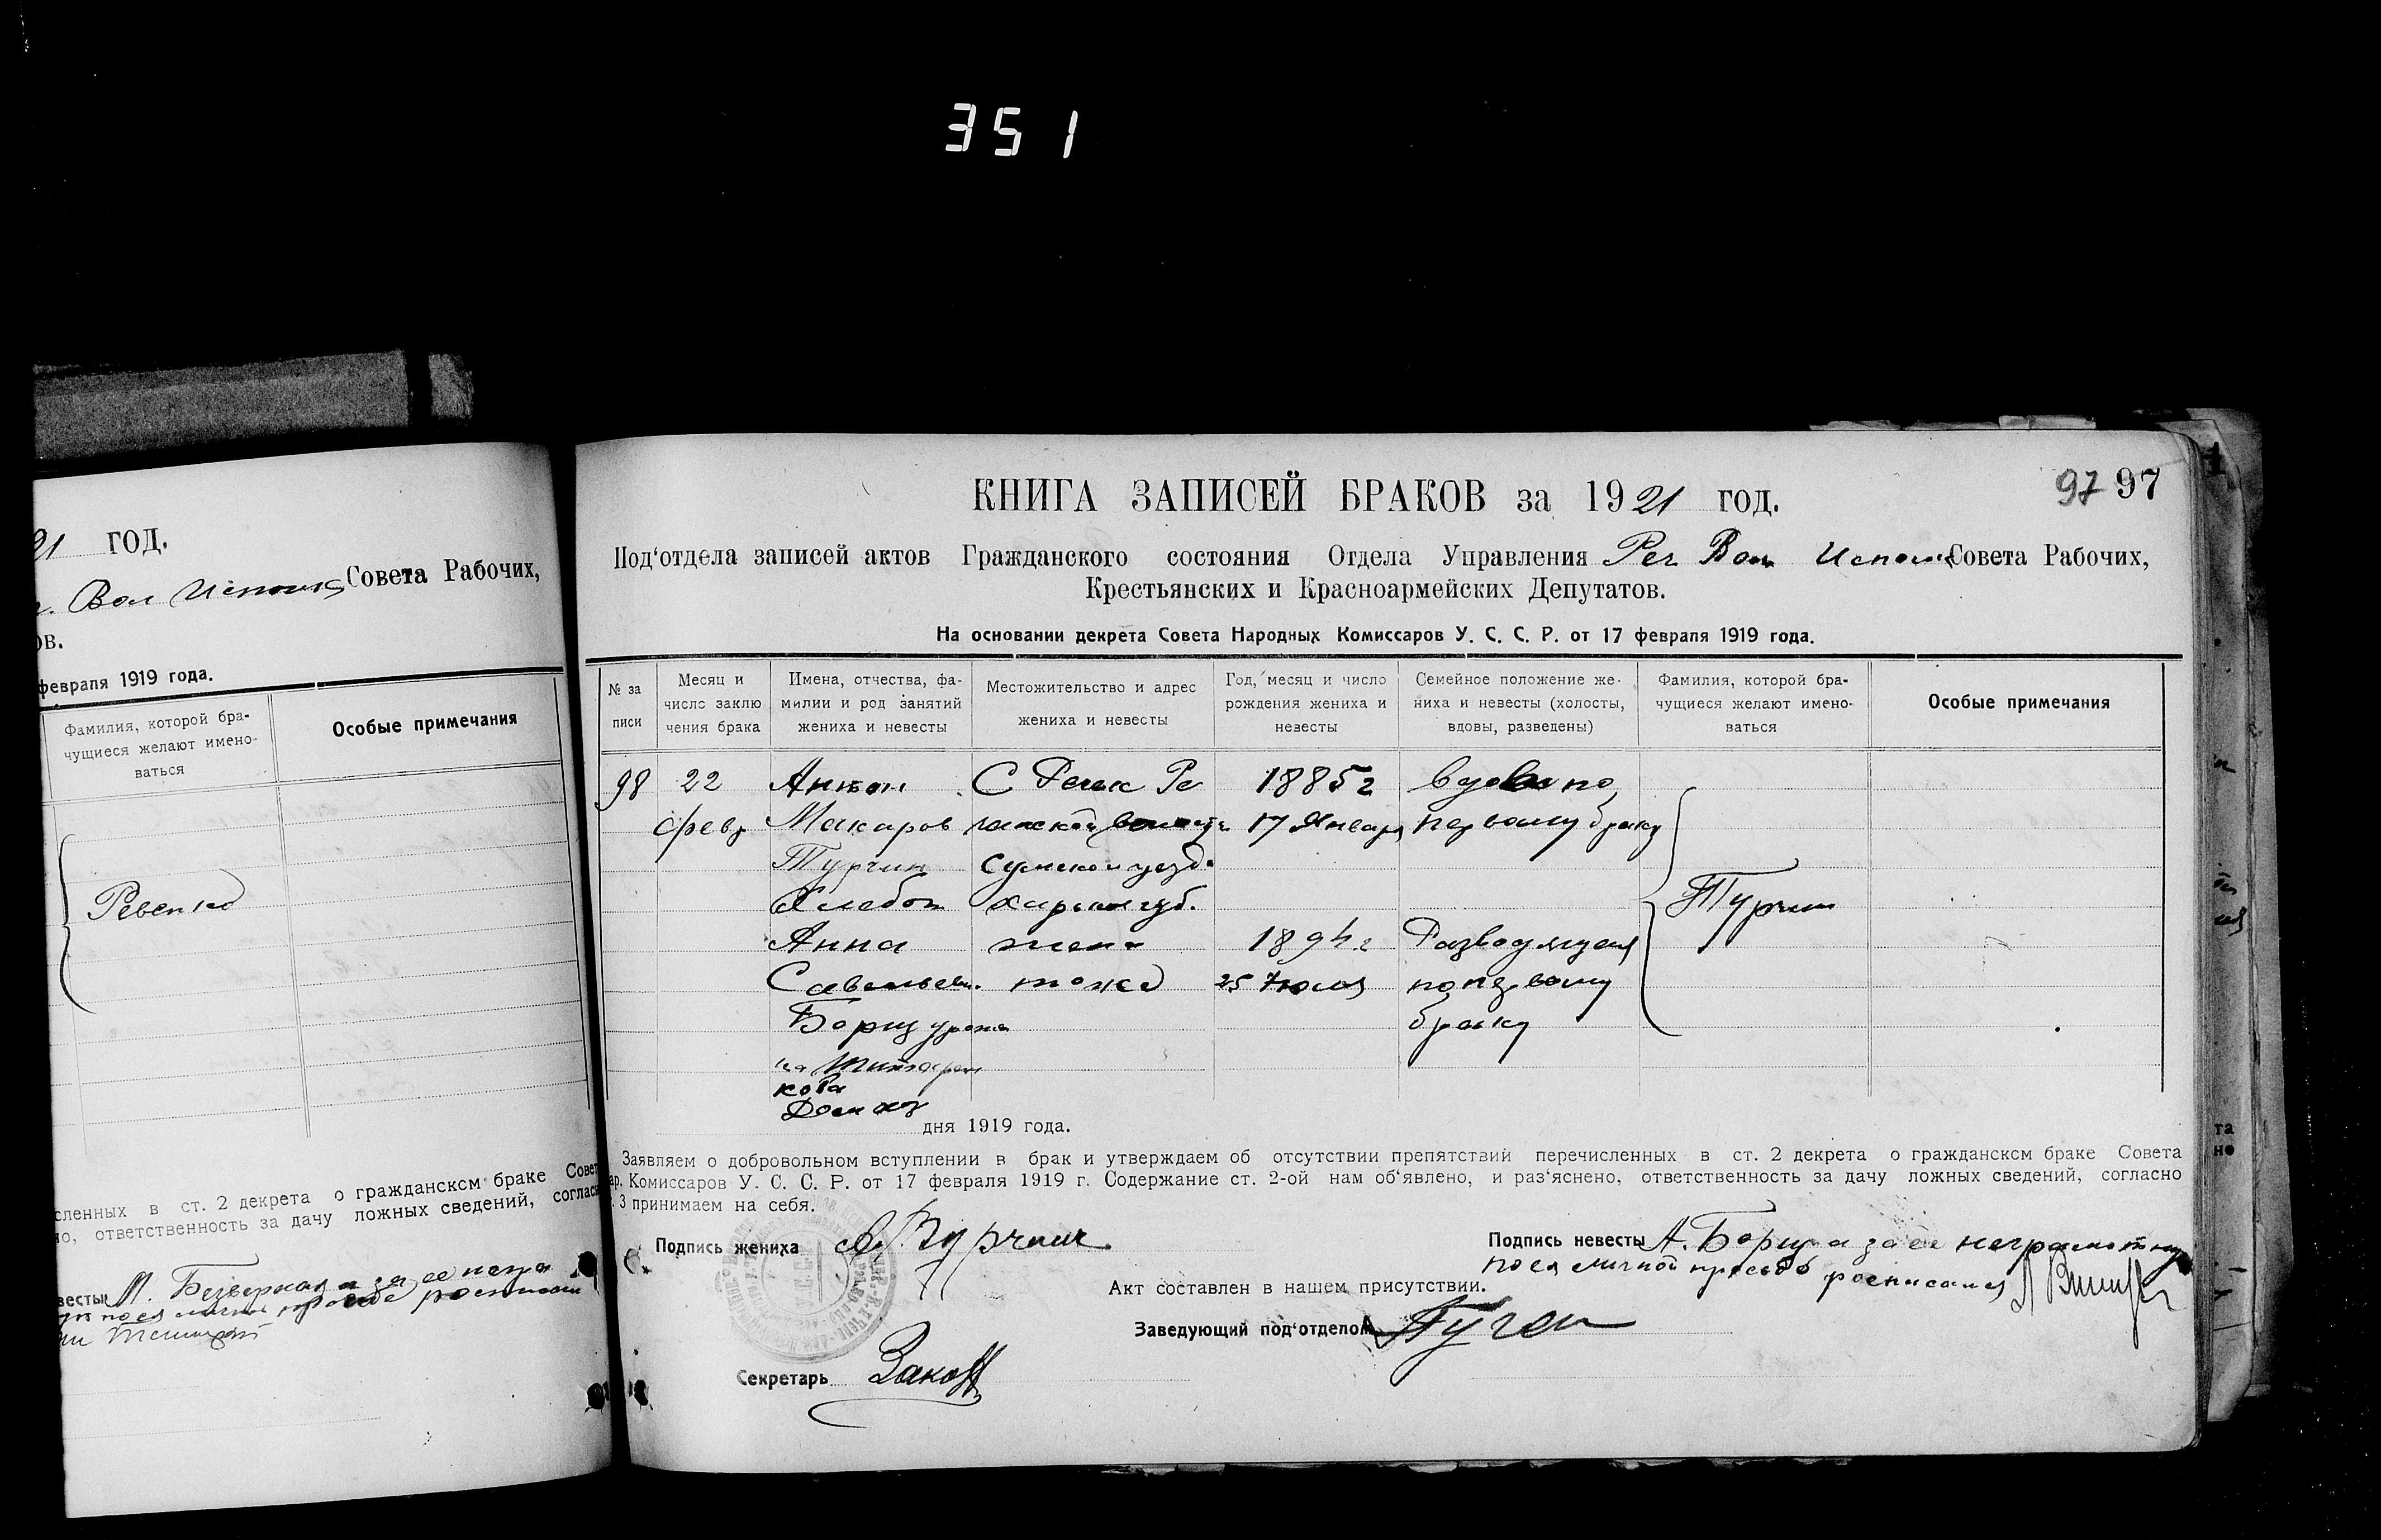 351
21 год.
Вол Исполк Совета Рабочих,
ов.
февраля 1919 года.
Фамилия, которой бра-
чущиеся желают имено-
ваться
Особые примечания
Ревенко
сленных в ст. 2 декрета о гражданском браке Совет
но, ответственность за дачу ложных сведений, соглас
весты М. Безверхая а за ее негр
по ея личной просьбе
КНИГА ЗАПИСЕЙ БРАКОВ за 1921 год.
97 97
Под‘отдела записей актов Гражданского состояния Отдела Управления Реч Вол Исполк Совета Рабочих,
Крестьянских и Красноармейских Депутатов.
На основании декрета Совета Народных Комиссаров У. С. С. Р. от 17 февраля 1919 года.
№ за
писи
Месяц и
число заклю
чения брака
Имена, отчества, фа-
милии и род занятий
жениха и невесты
Местожительство и адрес
жениха и невесты
Год, месяц и число
рождения жениха и
невесты
Семейное положение же-
ниха и невесты (холосты,
вдовы, разведены)
Фамилия, которой бра-
чущиеся желают имено-
ваться
Особые примечания
98 22 Антон С Речек Ре 1885 г вдов по
февр Макаров чанской волости 17 Января первому браку
Турчин Сумского уезд.
Хлебоп Харьк губ. Турчин
Анна 1894 г Разводящая
Савельевн. тоже 25 Июля по первому
Борщ урож браку
кова
Домхоз
дня 1919 года.
Заявляем о добровольном вступлении в брак и утверждаем об отсутствии препятствий перечисленных в ст. 2 декрета о гражданском браке Совета
ар. Комиссаров У. С. С. Р. от 17 февраля 1919 г. Содержание ст. 2-ой нам об‘явлено, и раз‘яснено, ответственность за дачу ложных сведений, согласно
. 3 принимаем на себя.
Подпись жениха А. Турчин
Подпись невесты А. Борщ а за ее неграмотну
по ея личной просьбе росписался
Акт составлен в нашем присутствии.
Заведующий под‘отделом
Секретарь